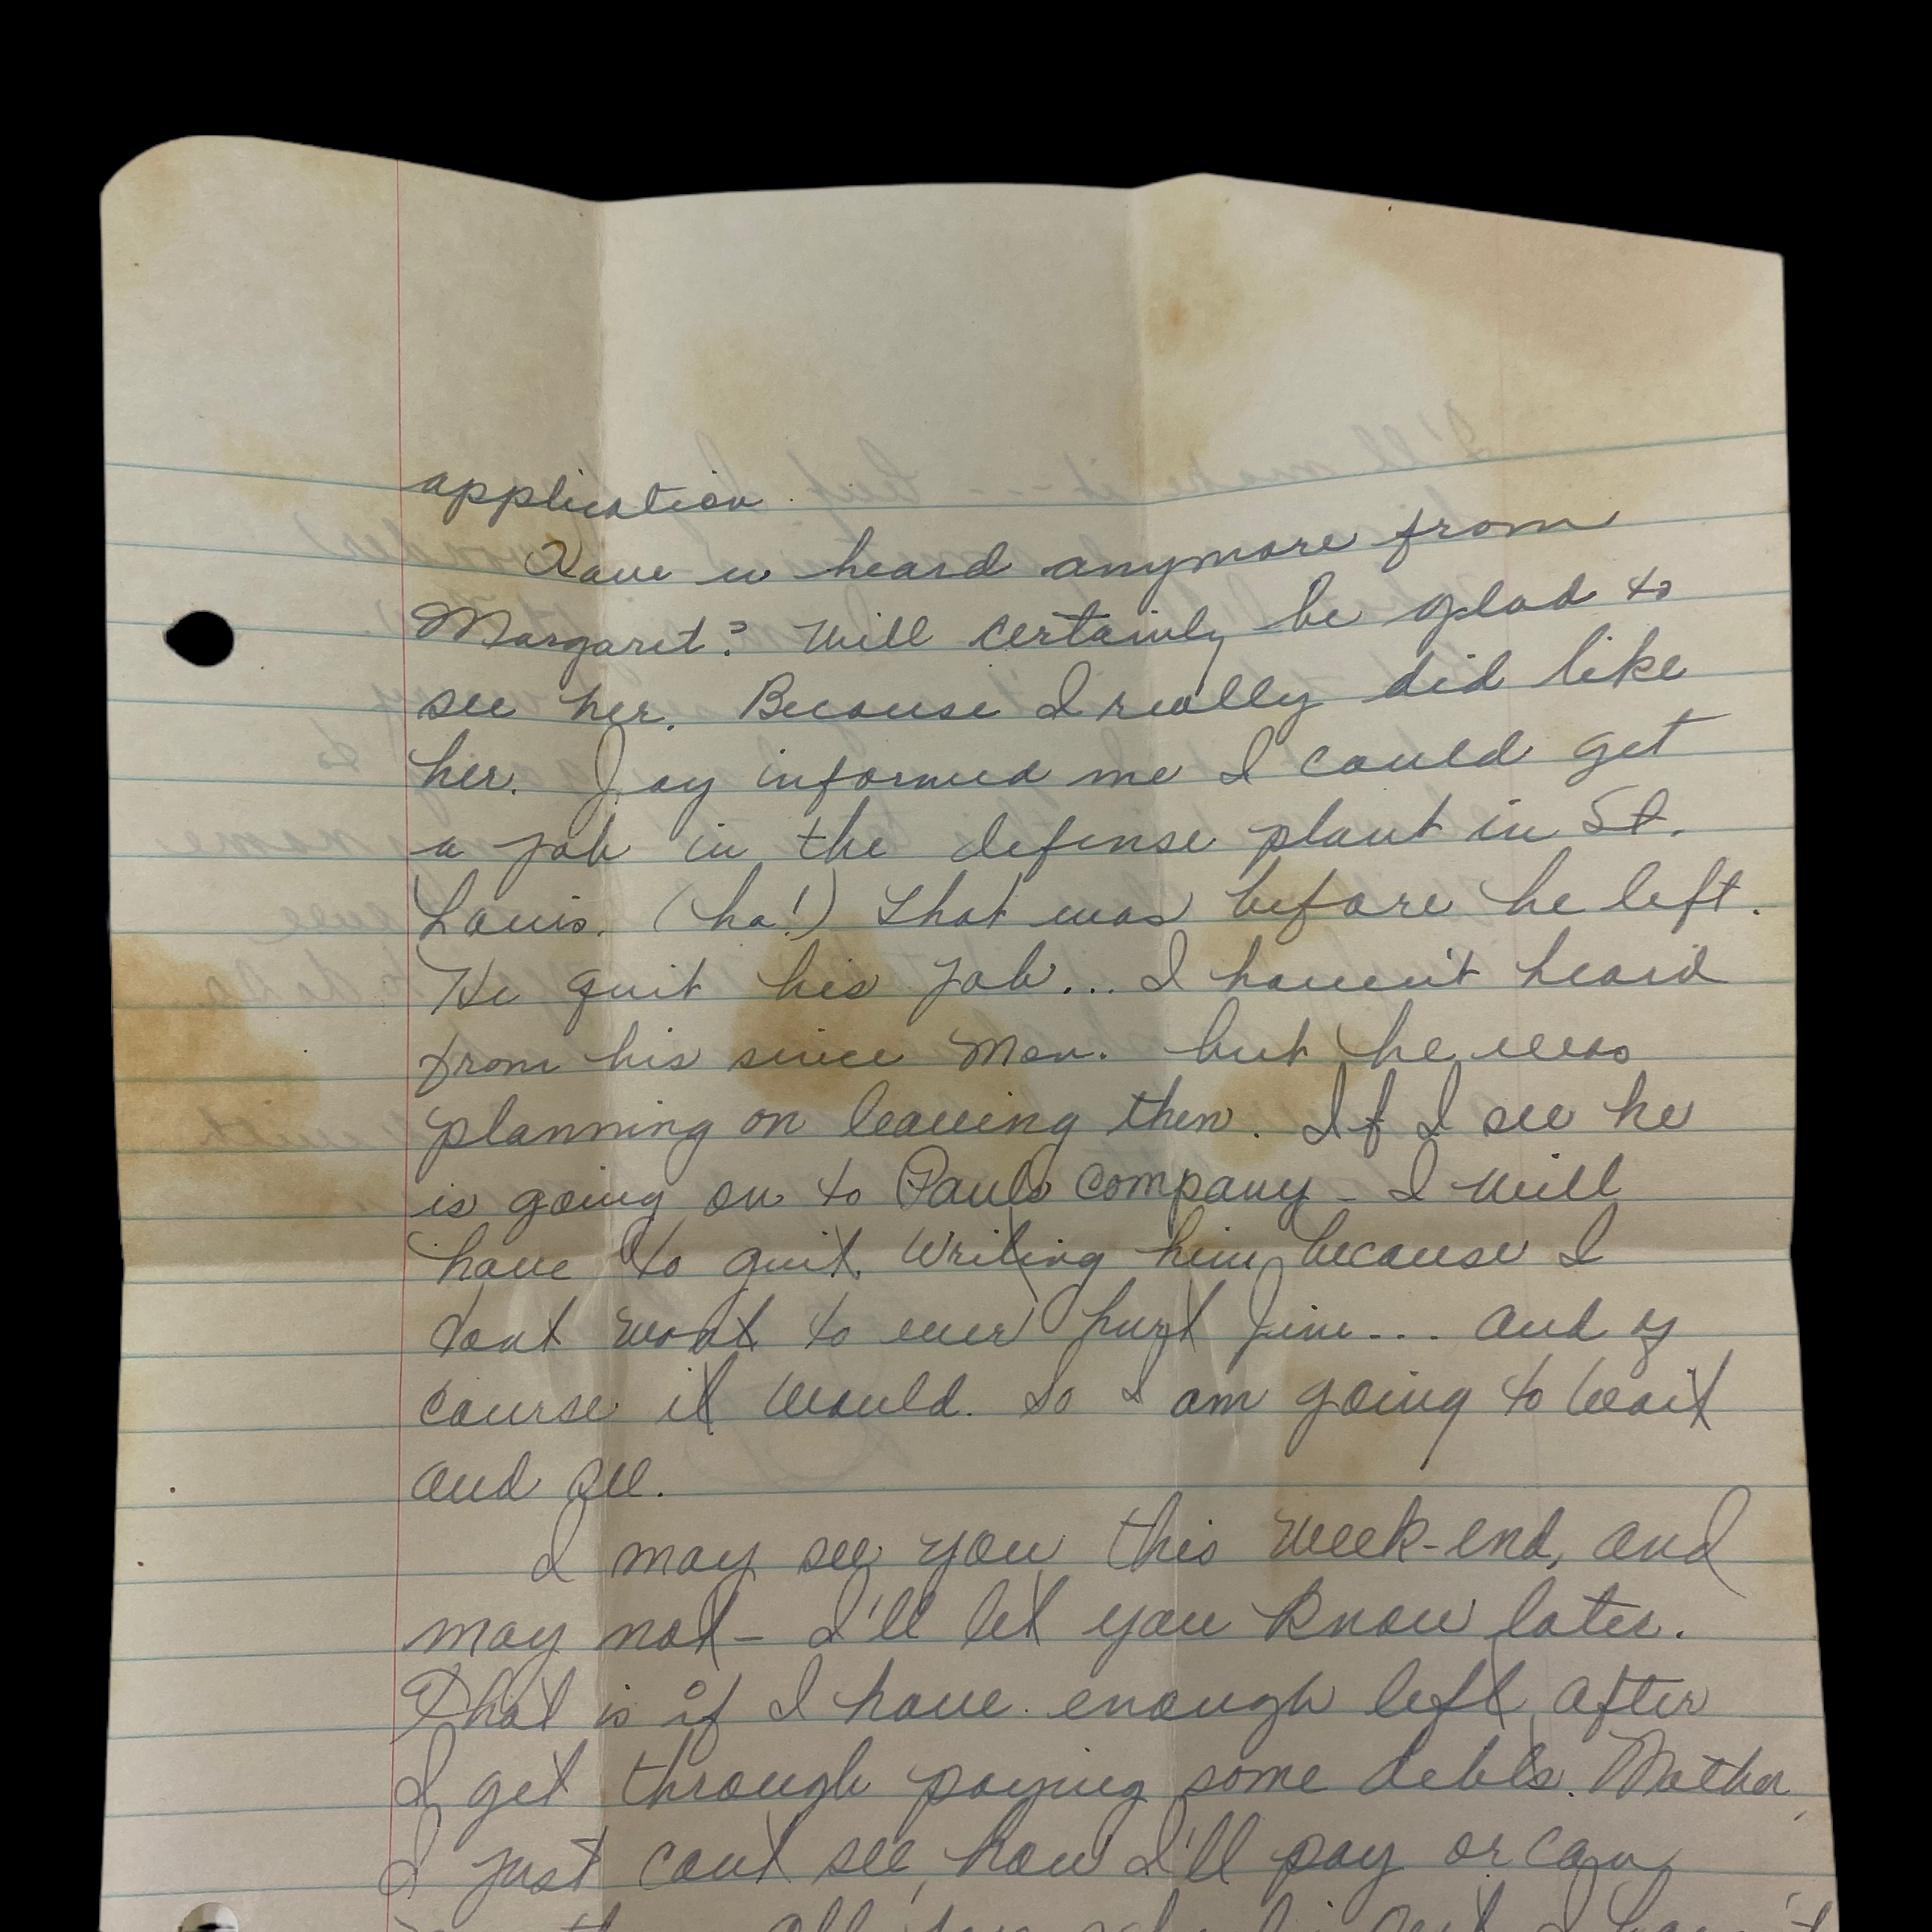 application
Have u heard anymore from
Margaret? Will certainly be glad to
see her. Because I really did like
her. Jay informed me I could get
a job in the defense plant in St.
Louis. (ha!) That was before he left.
He quit his job... I haven't heard
from his since Mon. but he was
planning on leaving then. If I see he
is going on to Pauls company - I will
have to quit writing him because I
dont want to ever hurt Jim... and of
course it would. So I am going to wait
and see.
I may see you this week-end, and
may not - I'll let you know later.
That is if I have enough left after
I get through paying some debts. Mother,
I just cant see, how I'll pay or can